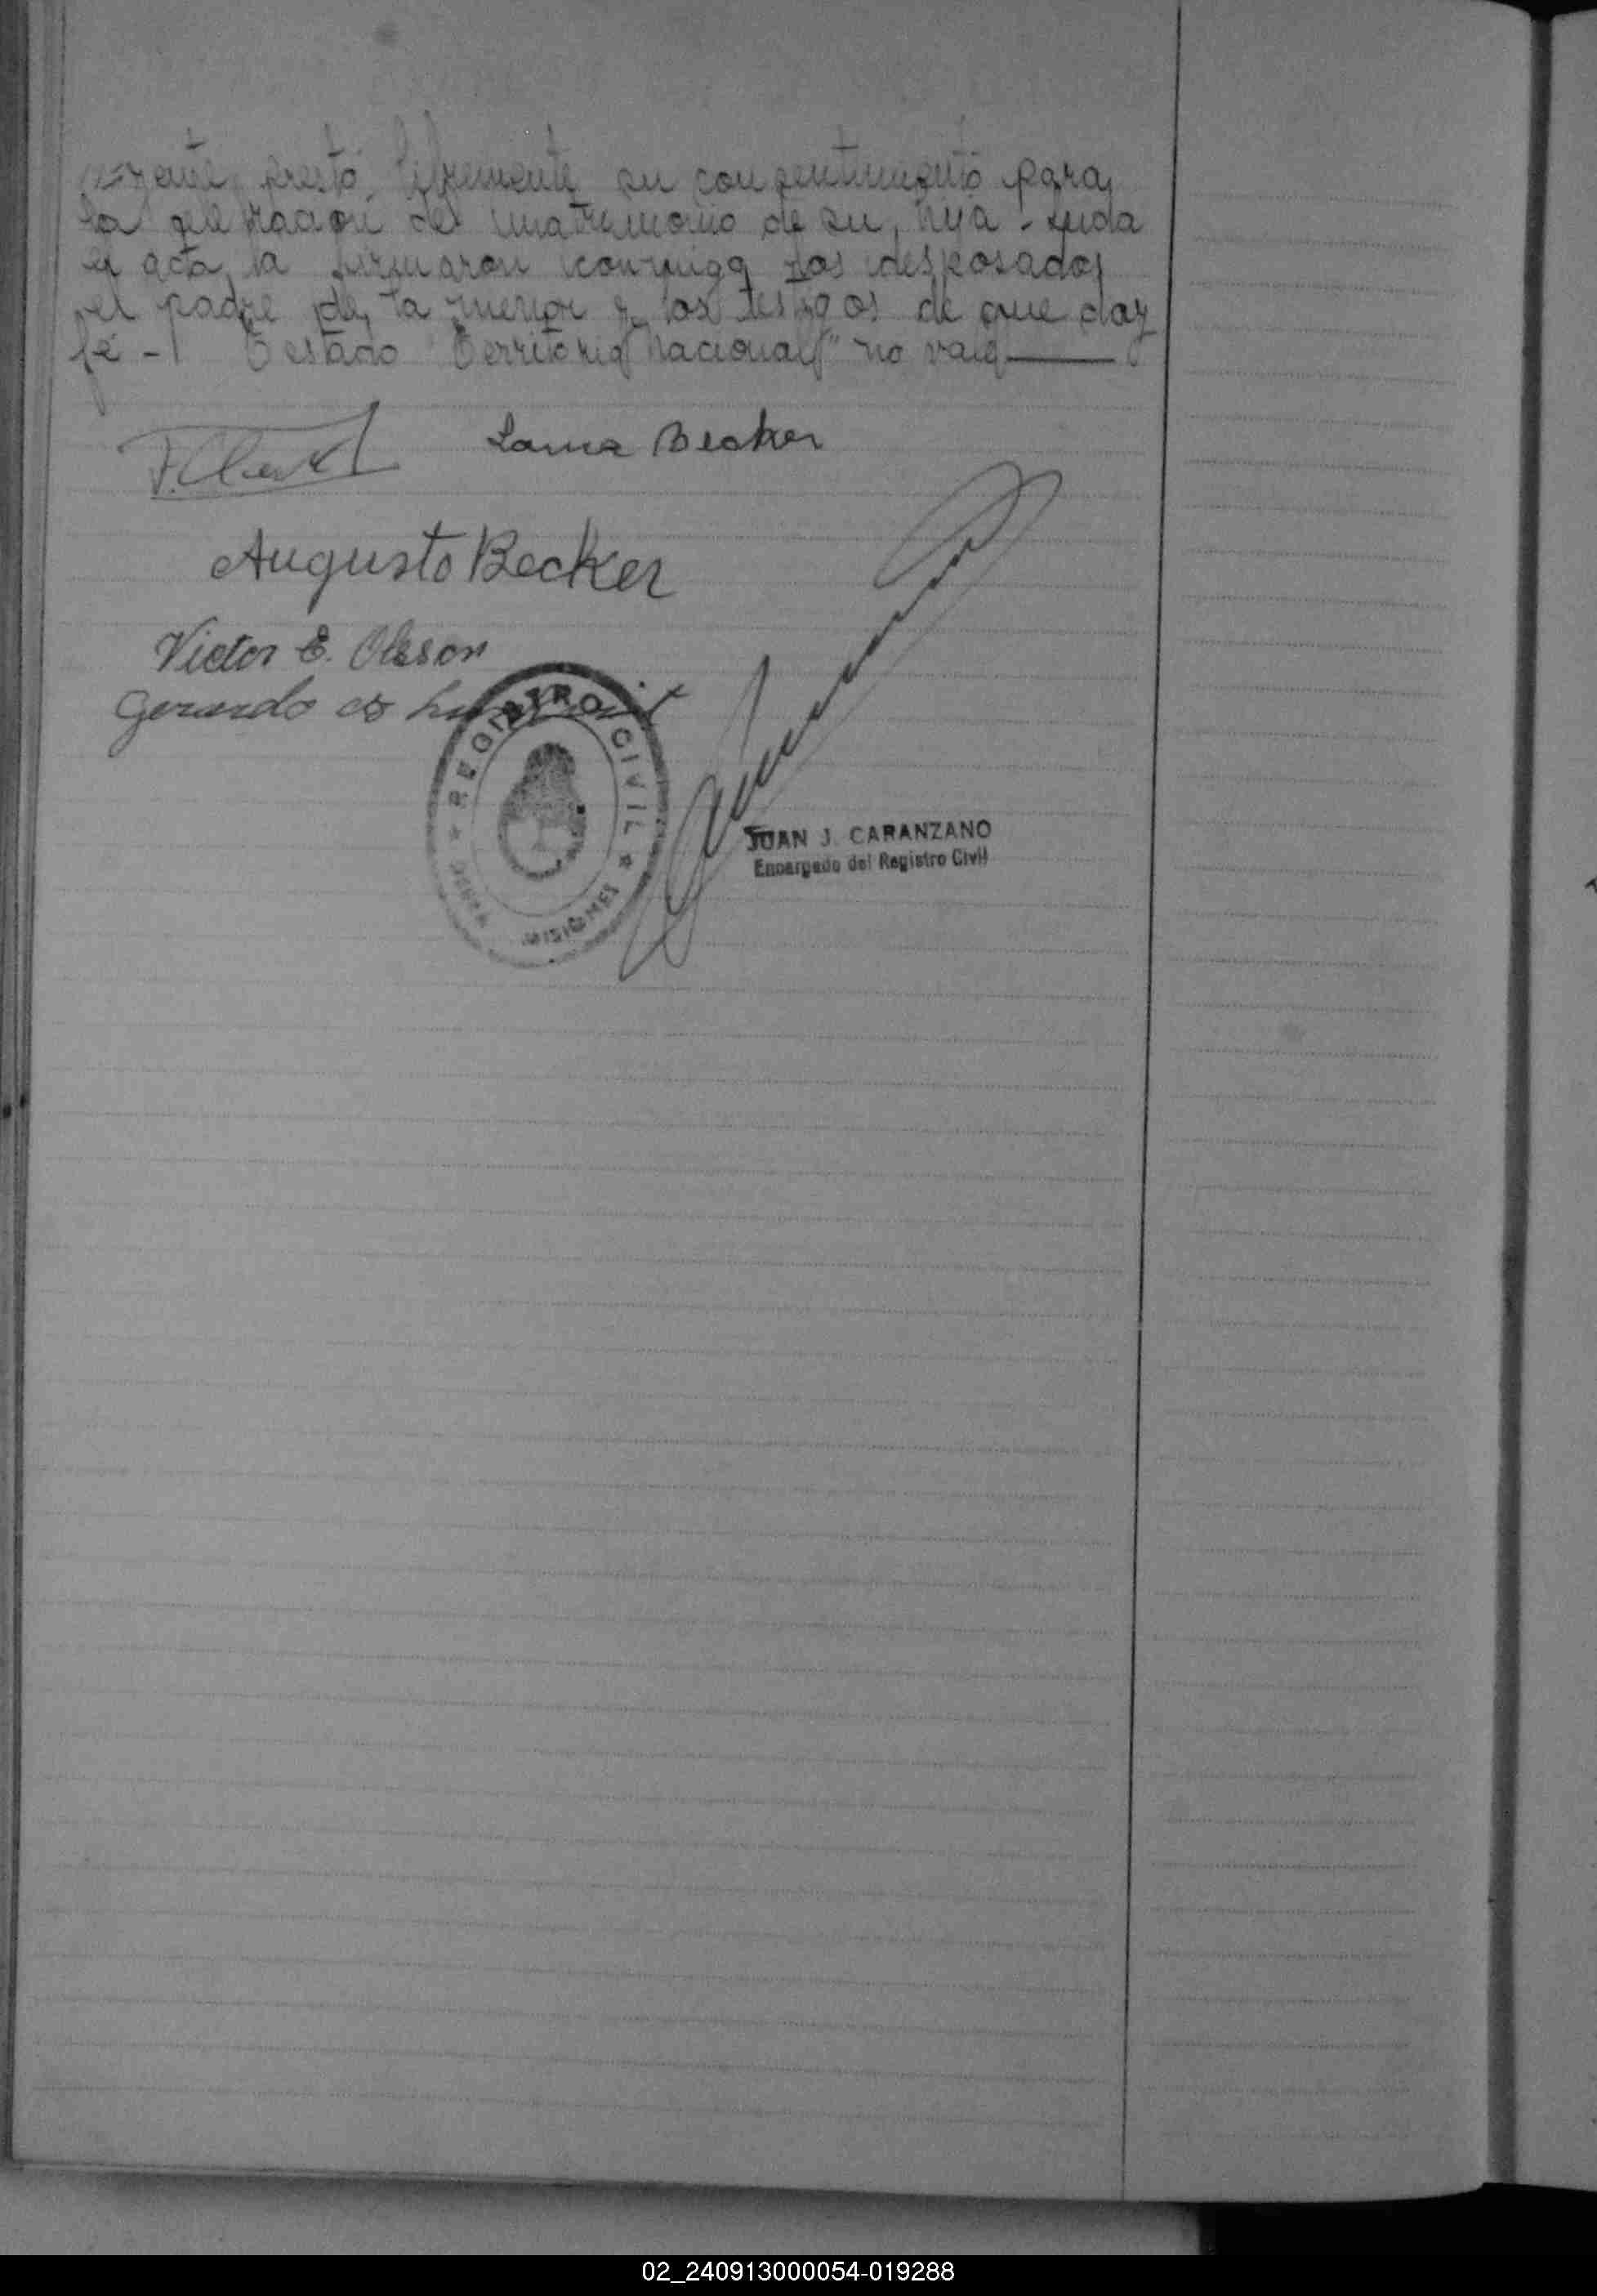 presto libremente su consentimiento para
la celebracion del matrimonio de su hija - Leida
el acta, la firmaron conmigo los desposados
el padre de la menor y los testigos de que doy
fé - Testado "Territorio Nacional" no vale
Becker
Augusto Becker
Victor E. Olsson
Gerardo
REGISTRO CIVIL
MISIONES
JUAN J. CARANZANO
Encargado del Registro Civil
02_240913000054-019288